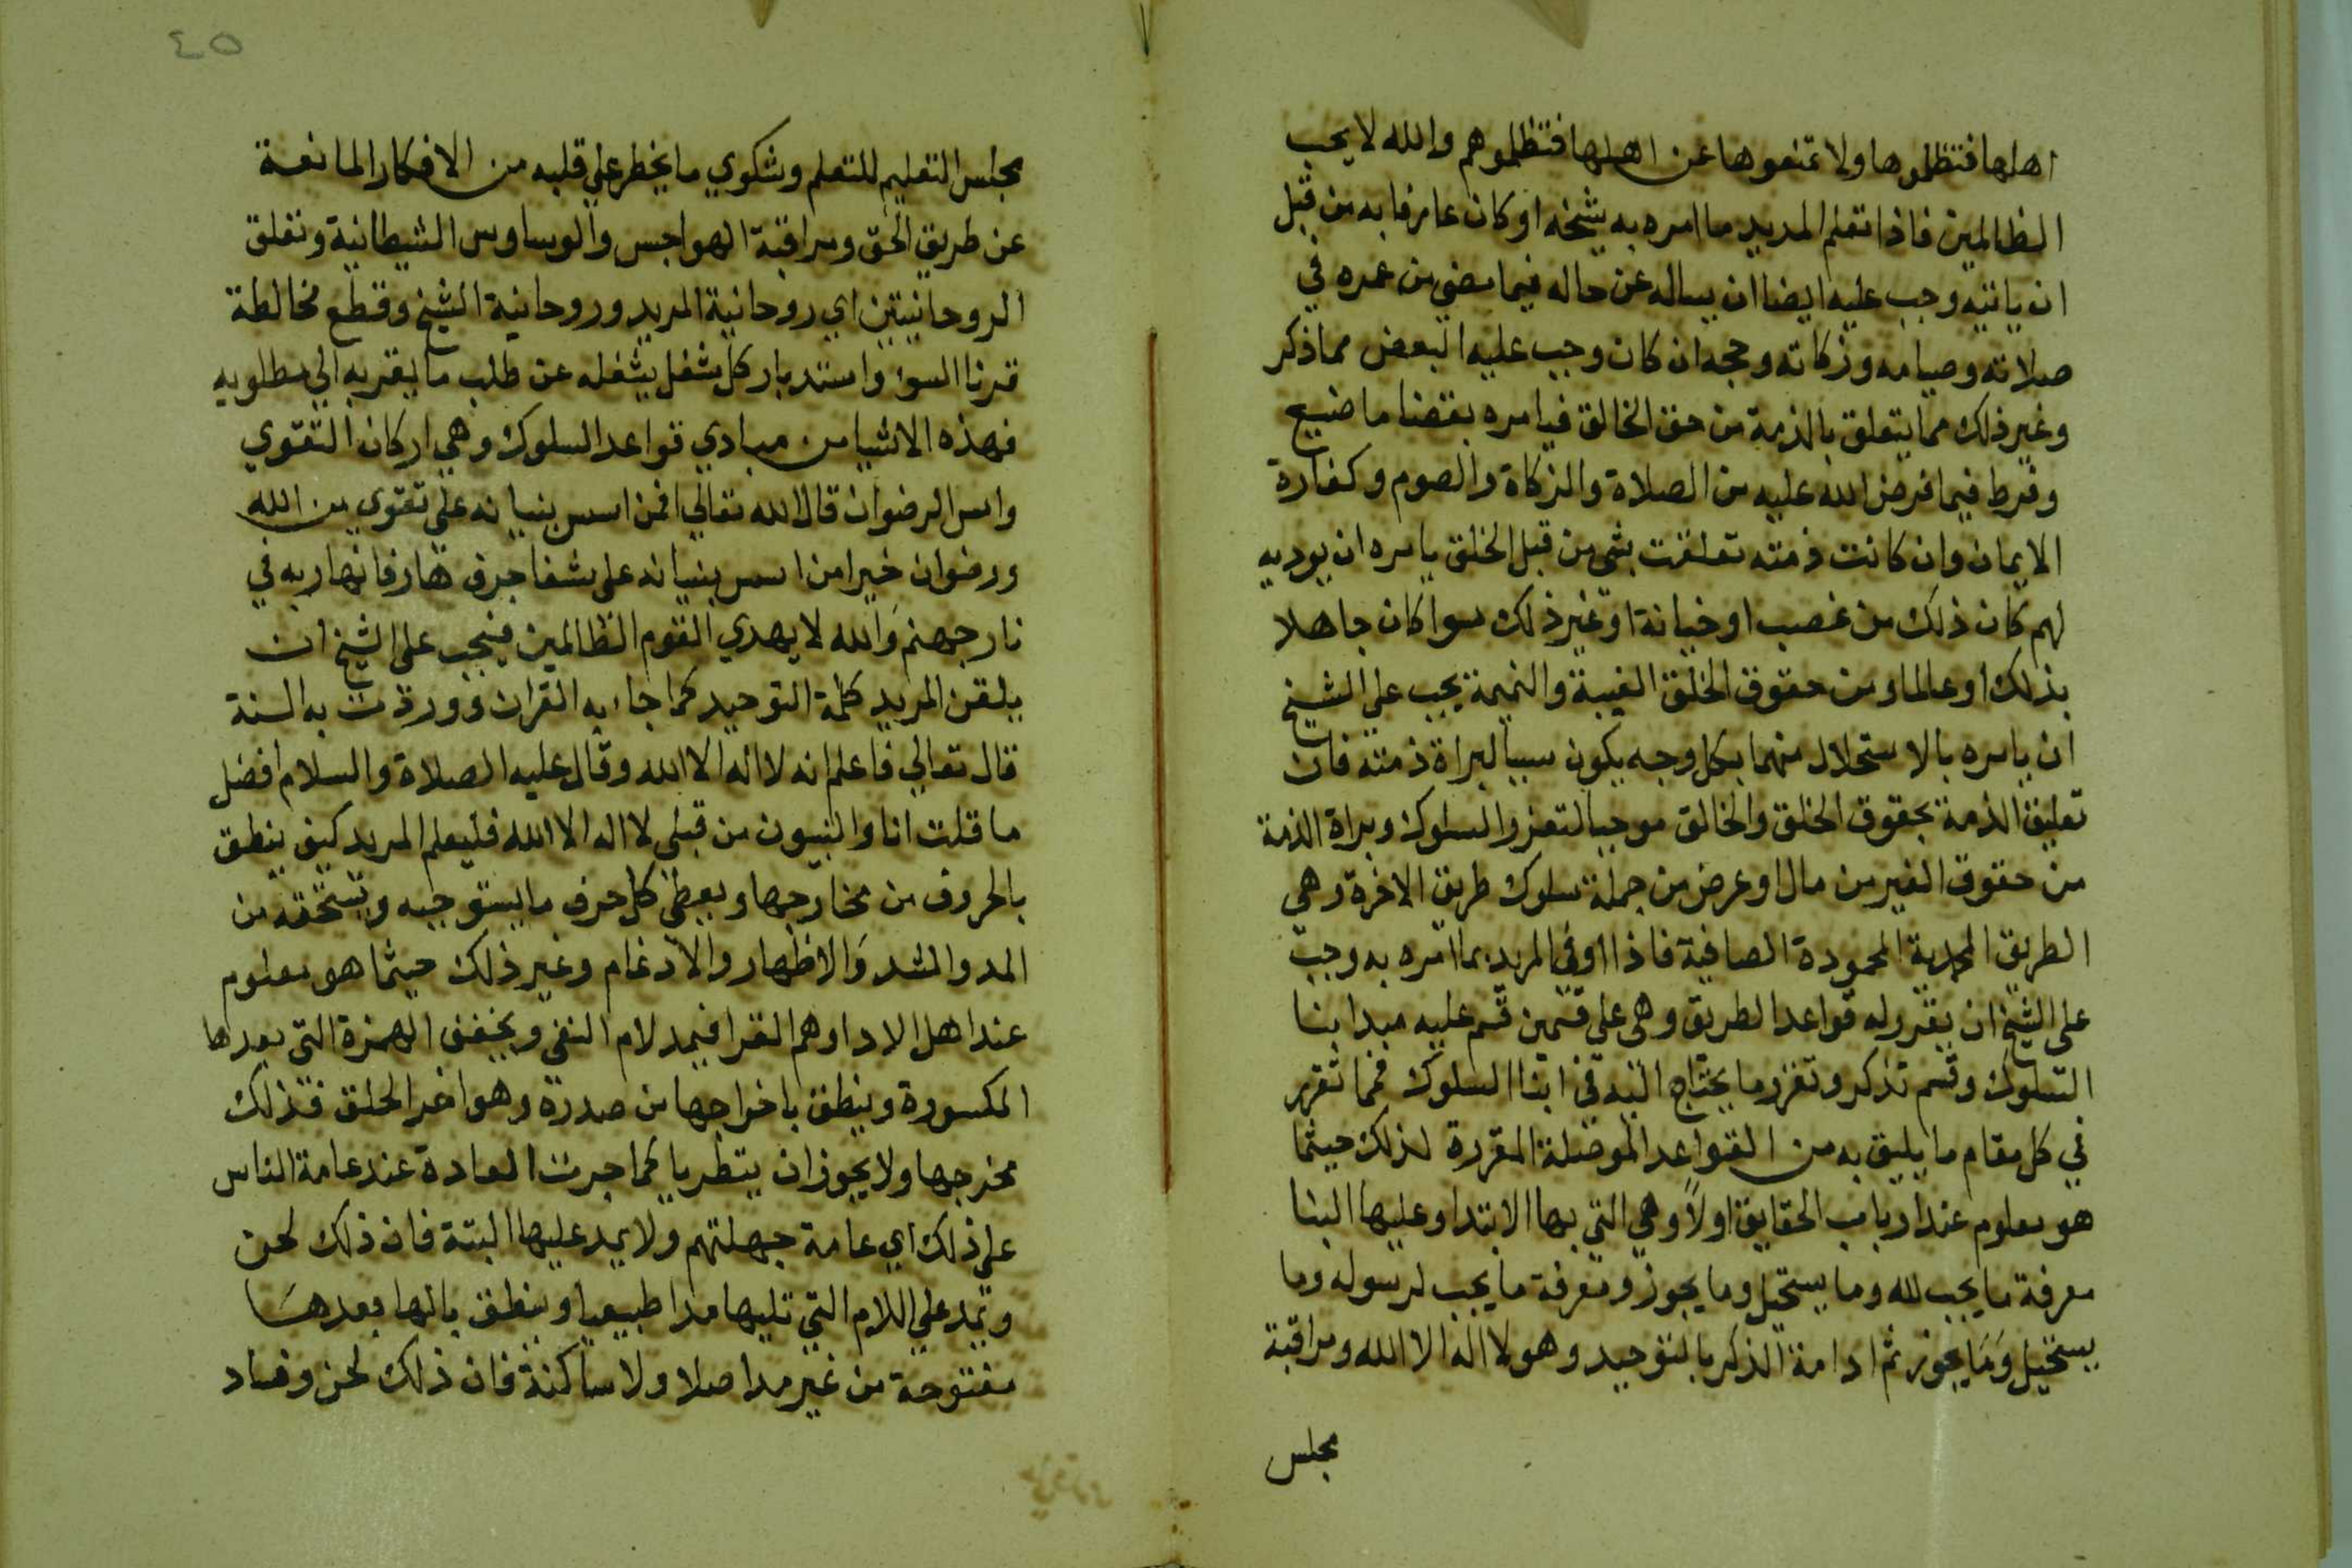 اهلها فتظلموها ولا تمنعوها عن اهلها فتظلموهم والله لا يحب
الظالمين فاذا تعلم المريد ما امره به شيخه او كان عارفا به من قبل
ان ياتيه وجب عليه ايضا ان يساله عن حاله فيما مضي من عمره في
صلاته وصيامه وزكاته وحجه ان كان وجب عليه البعض مما ذكر
وغير ذلك مما يتعلق بالذمة من حق الخالق فيامره بقضا ما ضيع
وفرط فيما فرض الله عليه من الصلاة والزكاة والصوم وكفارة
الايمان وان كانت ذمته تعلقت بشي من قبل الخلق يامره ان يوديه
لهم كان ذلك من غصب او خيانة او غير ذلك سوا كان جاهلا
بذلك او عالما ومن حقوق الخلق الغيبة والنميمة يجب علي الشيخ
ان يامره بالاستحلال منهما بكل وجه يكون سببا لبراة ذمته فان
تعليق الذمة بحقوق الخلق والخالق موجبا لتعزر السلوك وبراة الذمة
من حقوق الغير من مال او عرض من جملة سلوك طريق الاخرة وهي
الطريق المحمدية المحمودة الصافية فاذا اوفي المريد بما امره به وجب
علي الشيخ ان يقرر له قواعد الطريق وهي علي قسمين قسم عليه مبدا بنا
السلوك وقسم تذكر وتقرر ما يحتاج اليه في اثنا السلوك فمما تقرر
في كل مقام ما يليق به من القواعد الموصلة المقررة لذلك حيثما
هو معلوم عند ارباب الحقايق اولاً وهي التي بها الابتدا وعليها البنا
معرفة ما يجب لله وما يستحيل وما يجوز ومعرفة ما يجب لرسوله وما
يستحيل وما يجوز ثم ادامة الذكر بالتوحيد وهو لا اله الا الله ومراقبة
مجلس
٤٥
مجلس التعليم للتعلم وشكوي ما يخطر علي قلبه من الافكار المانعة
عن طريق الحق ومراقبة الهواجس والوساوس الشيطانية وتعلق
الروحانيتين اي روحانية المريد وروحانية الشيخ وقطع مخالطة
قرنا السوء واستدبار كل شغل يشغله عن طلب ما يقربه الي مطلوبه
فهذه الاشيا من مبادي قواعد السلوك وهي اركان التقوي
واس الرضوان قال الله تعالي افمن اسس بنيانه علي تقوي من الله
ورضوان خير امن اسس بنيانه علي شفا جرف هار فانهار به في
نار جهنم والله لا يهدي القوم الظالمين فيجب علي الشيخ ان
يلقن المريد كلمة التوحيد كما جاء به القران ووردت به السنة
قال تعالي فاعلم انه لا اله الا الله وقال عليه الصلاة والسلام افضل
ما قلت انا والنبيون من قبلي لا اله الا الله فليعلم المريد كيف ينطق
بالحروف من مخارجها ويعطي كل حرف ما يستوجبه ويستحقه من
المد والشد والاظهار والادغام وغير ذلك حيثما هو معلوم
عند اهل الادا وهم القرا فيمد لام النفي ويخفف الهمزة التي بعدها
المكسورة وينطق باخراجها من صدره وهو اخر الحلق فذلك
مخرجها ولا يجوز ان يتطريا كما جرت العادة عند عامة الناس
علي ذلك اي عامة جهلتهم ولا يمد عليها البتة فان ذلك لحن
وتمد علي اللام التي تليها مدا طبيعيا وينطق بالها بعدها
مفتوحة من غير مد اصلا ولا ساكنة فان ذلك لحن وفساد